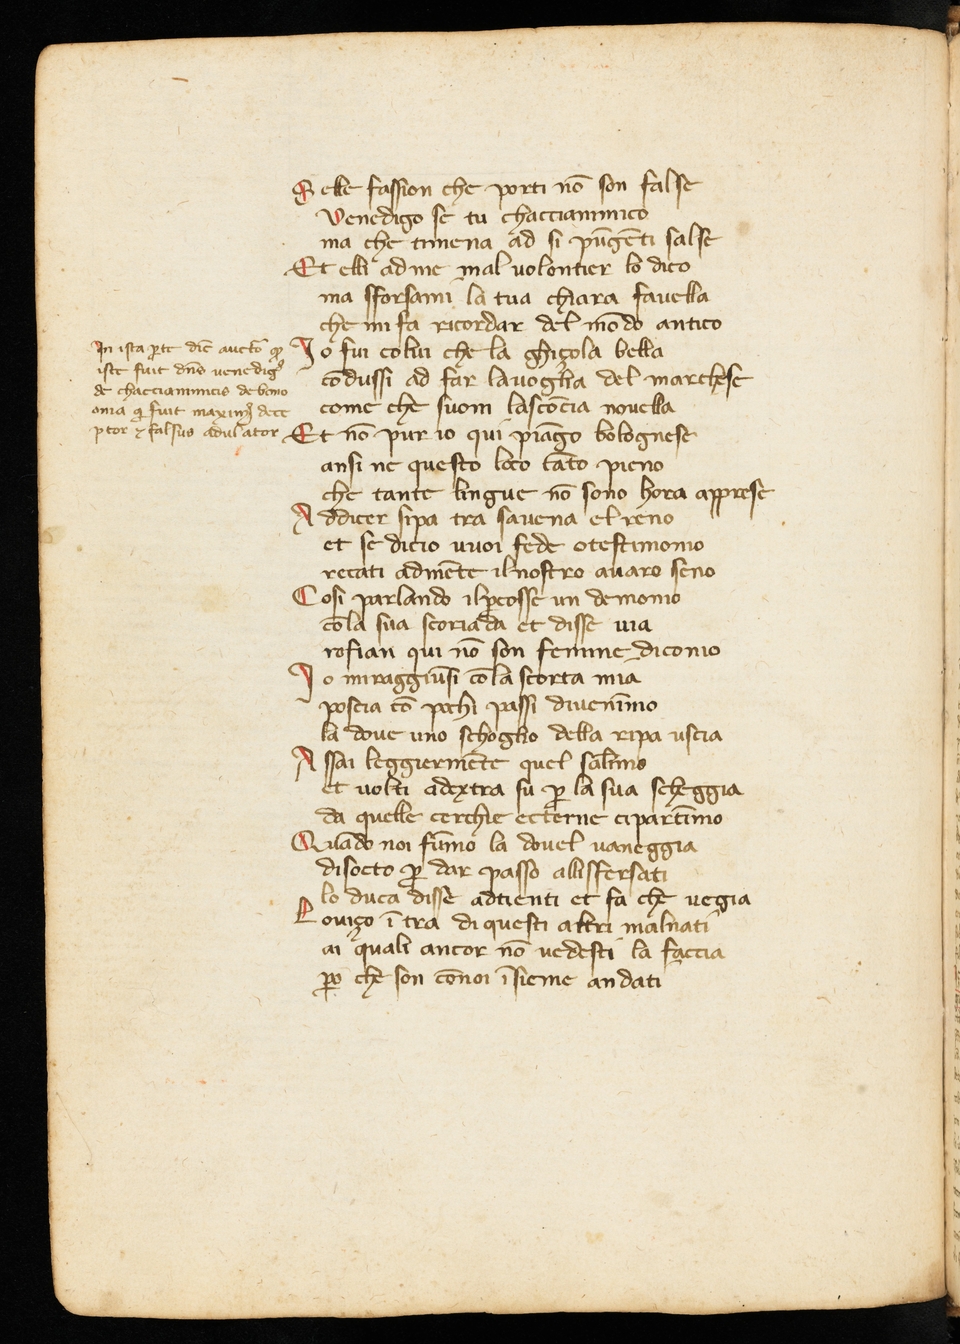 Se lle fassion che porti nō son false
Venedigo se tu chacciammico
ma che timena ad si pūgēti salse
Et elli ad me mal uolontier lo dico
ma sforsami la tua chiara fauella
che mi fa ricordar del mōdo antico
Io fui colui che la ghiçola bella
cōdussi ad far la uoglia del marchese
come che suom la scōcia nouella
Et nō pur io qui piāgo bolognese
ansi ne questo loco tāto pieno
che tante lingue nō sono hora apprese
Addicer sipa tra sauena el reno
et se dicio uuoi fede o testimonio
recati admēte il nostro auaro seno
Cosi parlando il ꝑcosse un demonio
cōla sua scoriada et disse uia
rofian qui nō son femine diconio
Io miraggiūsi cōla scorta mia
poscia cō pochi passi diuenīmo
la doue uno schoglio della ripa uscia
Assai leggiermēte quel salīmo
et uolti adextra su ꝑ la sua scheggia
da quelle cerchie ecterne ci partīmo
Quādo noi fūmo la douel uaneggia
disocto ꝑ dar passo alli sfersati
lo duca disse adtienti et fa che uegia
Lo uiço ī tra di questi altri malnati
ai quali ancor nō uedesti la faccia
ꝑo che son cōnoi īsieme andati
In ista ꝑte dic̄ auctō ꝙ
iste fuit dn̄s uenedigꝰ
de chacciammicis de bono
onia qi fuit maximꝰ dece
ptor ⁊ falsus adulator